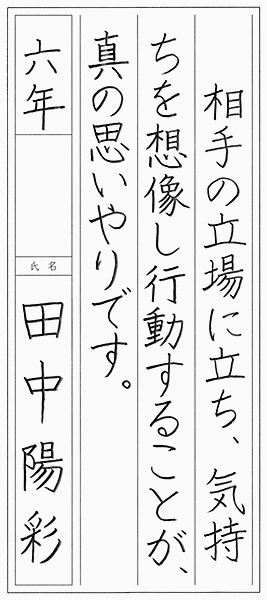 相手の立場に立ち、気持
ちを想像し行動することが、
真の思いやりです。
六年
氏名
田中陽彩